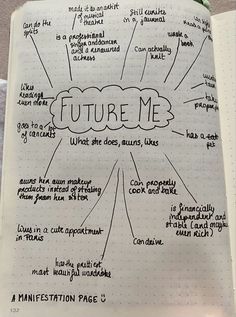 made it to an artist
of musical
theatre
Still writes
in a journal
Can do the
splits
is a professional
singer and dancer
and a renowned
actress
Can actually
knit
book
likes
reading
even more
take
FUTURE ME
What she does, owns, likes
goes to a lot
of concerts
has a
pet
owns her own makeup
products instead of stealing
them from her sister
Can properly
cook and bake
is financially
independent and
stable (and maybe
even rich)
lives in a cute appartment
in Paris
Can drive
has the prettiest,
most beautiful wardrobe
A MANIFESTATION PAGE
132